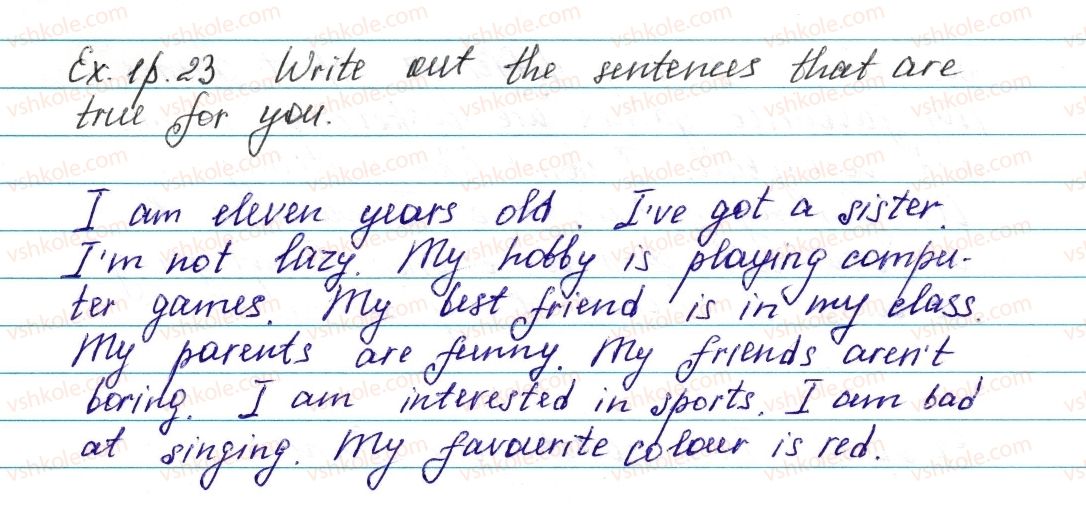 Ex. 1 p. 23 Write out the sentences that are
true for you.
I am eleven years old. I've got a sister.
I'm not lazy. My hobby is playing compu-
ter games. My best friend is in my class.
My parents are funny. My friends aren't
boring. I am interested in sports. I am bad
at singing. My favourite colour is red.